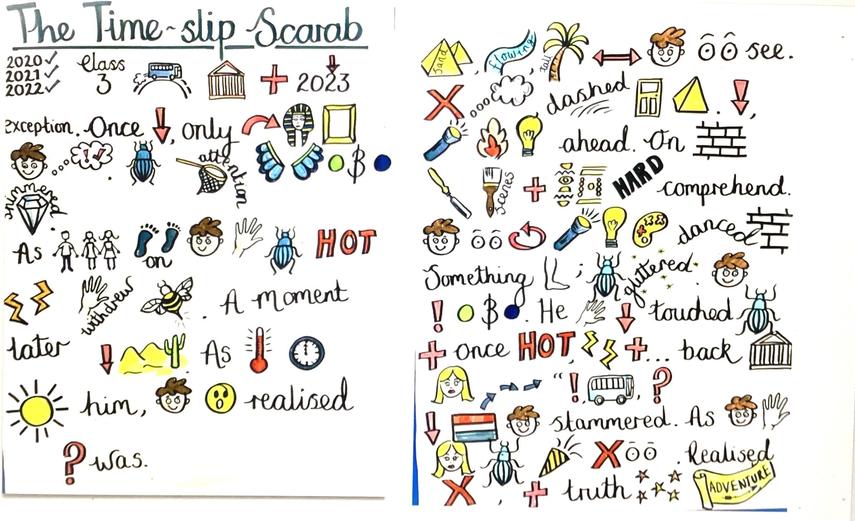 The Time-slip Scarab
2020✓
2021✓
2022✓
Class 3 + 2023
exception. Once , only
!?
attention
$
As on HOT
withdrew . A moment
later As
him, realised
? was.
Sand flowing Tall see.
X dashed . ,
ahead. On
scenes + HARD comprehend.
danced
Something ; glittered
! $ . He touched
+ once HOT + ... back
"! , ?
stammered. As
X . Realised
X , + truth ADVENTURE